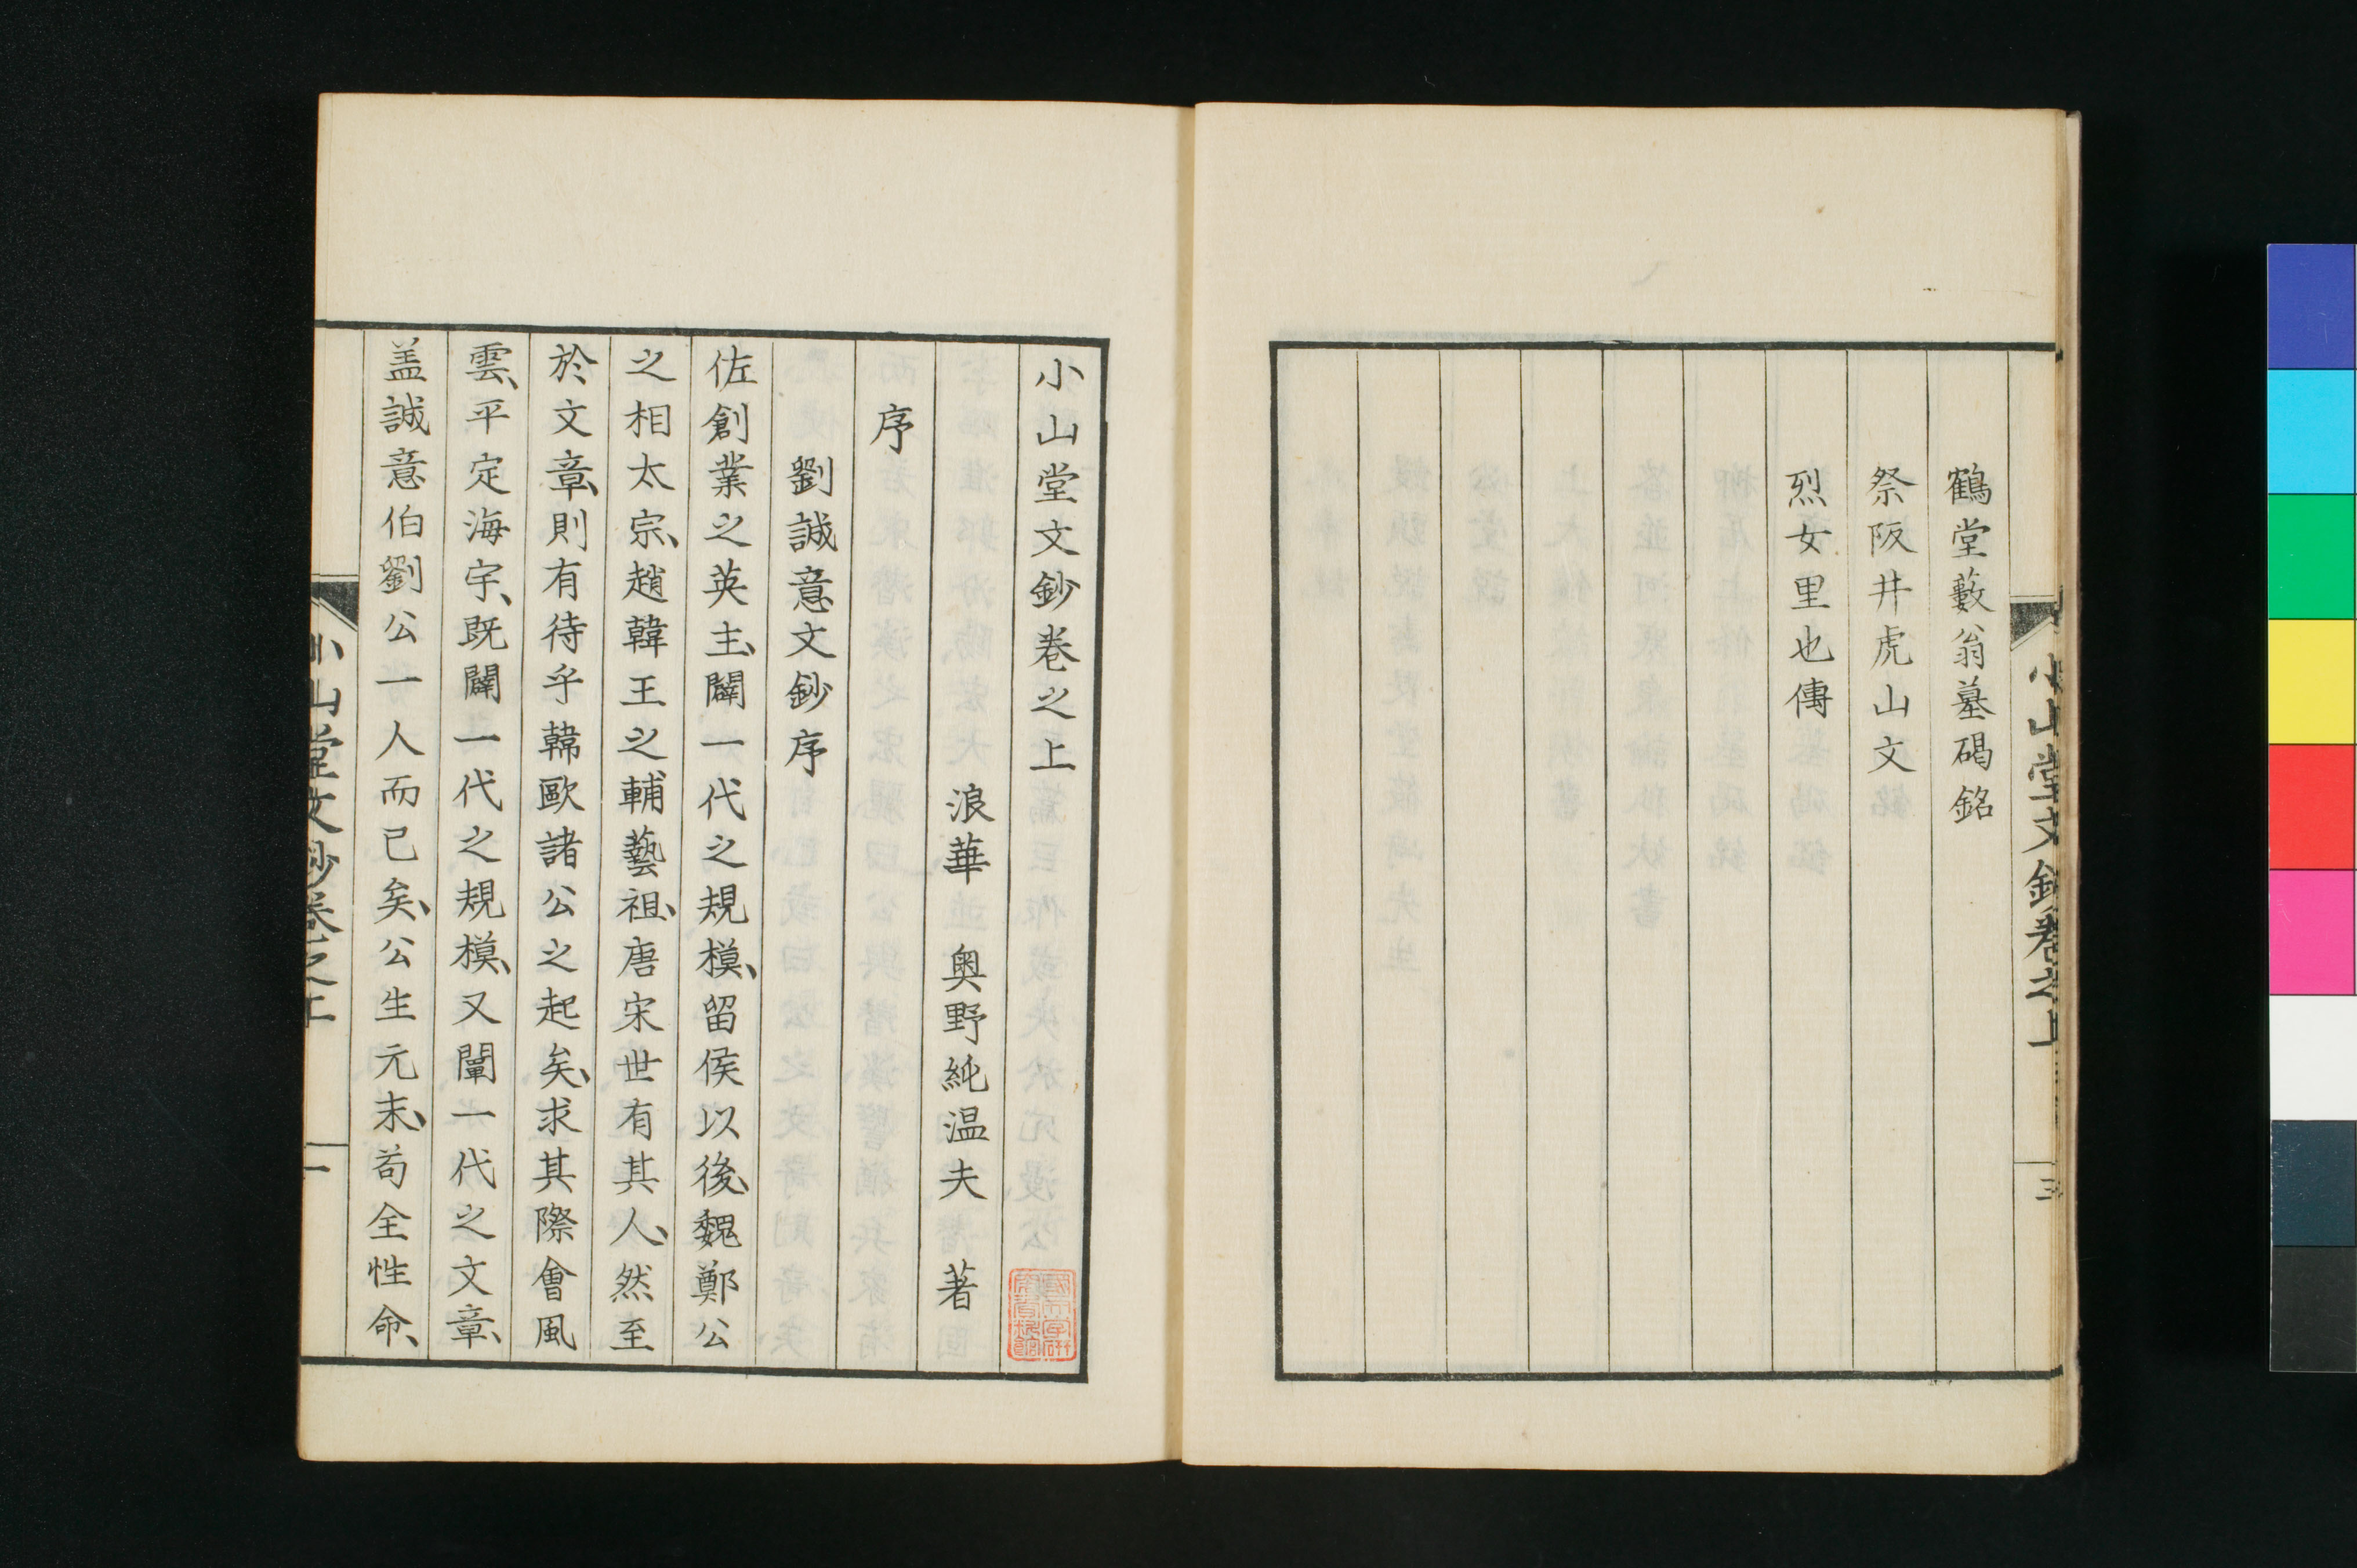 小山堂文鈔卷之上
三
鶴堂藪翁墓碣銘
祭阪井虎山文
烈女里也傳
小山堂文鈔卷之上
浪華 奥野純温夫 著
序
劉誠意文鈔序
佐創業之英主、闢一代之規模、留侯以後、魏鄭公
之相太宗、趙韓王之輔藝祖、唐宋世有其人、然至
於文章、則有待乎韓歐諸公之起矣、求其際會風
雲、平定海宇、既闢一代之規模、又闡一代之文章、
盖誠意伯劉公一人而已矣、公生元末、苟全性命、
小山堂文鈔卷之上
一